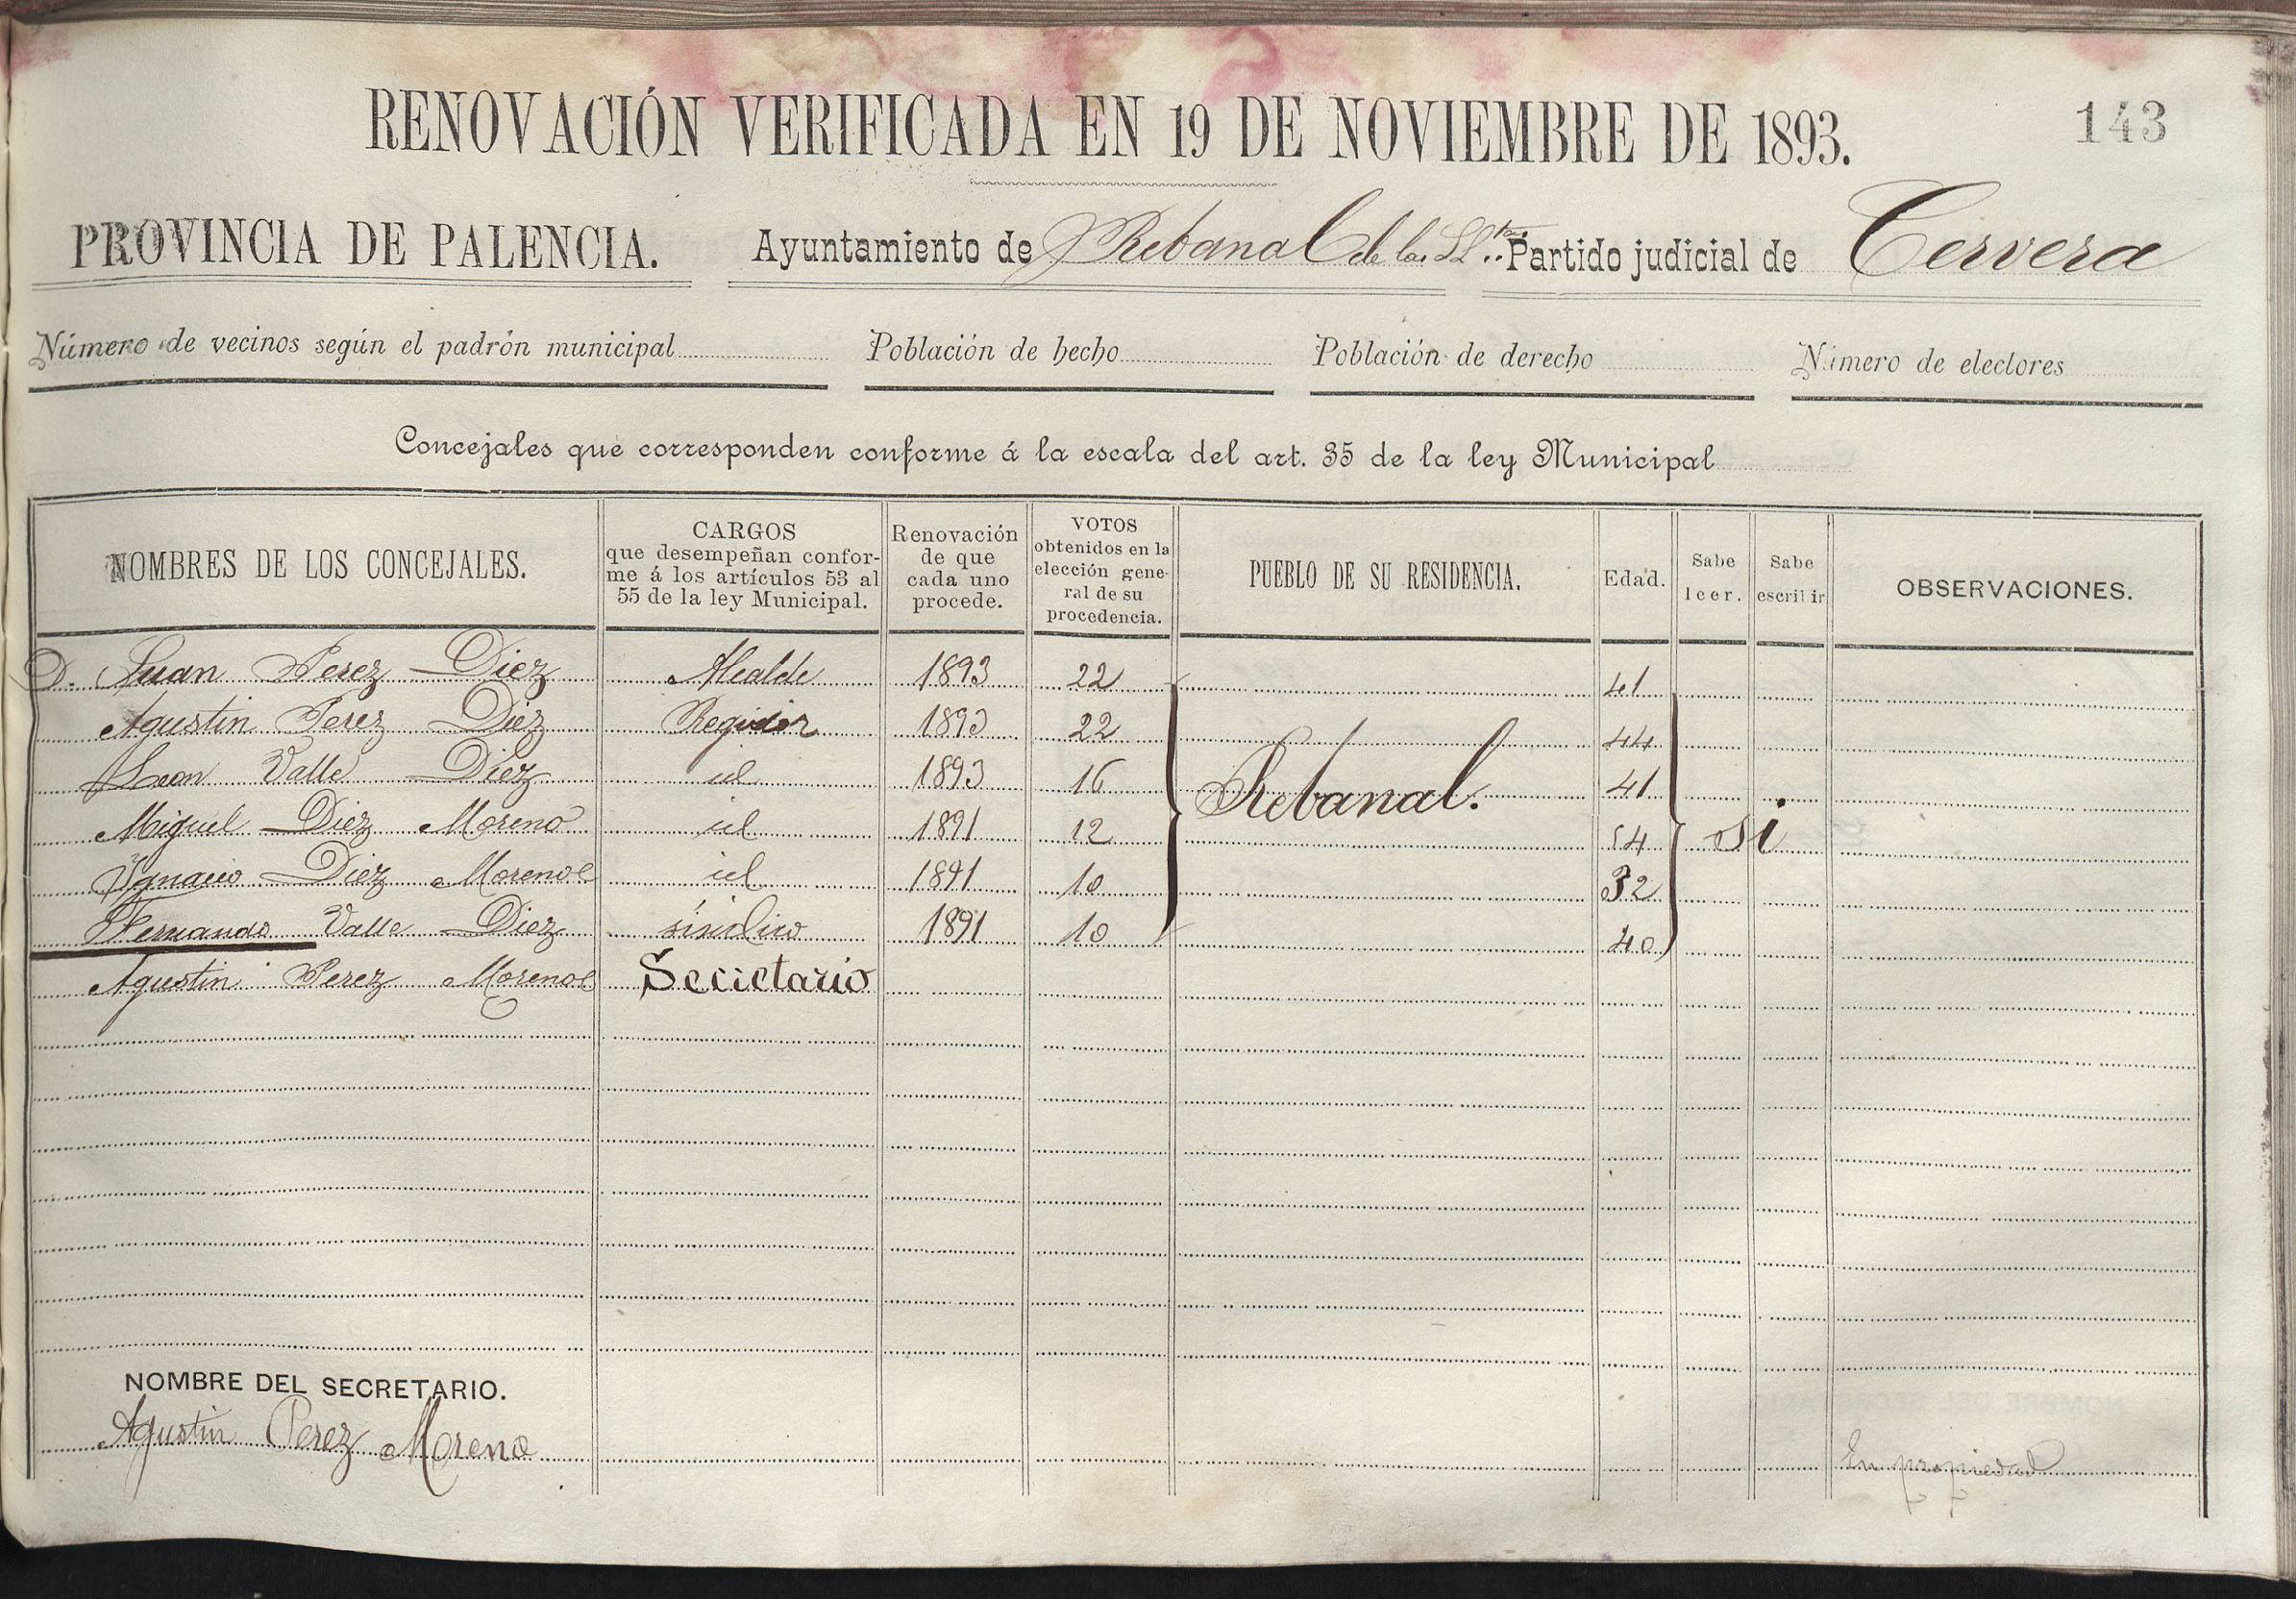 143
RENOVACIÓN VERIFICADA EN 19 DE NOVIEMBRE DE 1893.
PROVINCIA DE PALENCIA. Ayuntamiento de Rebanal de las Ll.tas Partido judicial de Cervera
Número de vecinos según el padrón municipal Población de hecho Población de derecho Número de electores
Concejales que corresponden conforme á la escala del art. 35 de la ley Municipal
NOMBRES DE LOS CONCEJALES.
CARGOS
que desempeñan confor-
me á los artículos 53 al
55 de la ley Municipal.
Renovación
de que
cada uno
procede.
VOTOS
obtenidos en la
elección gene-
ral de su
procedencia.
PUEBLO DE SU RESIDENCIA.
Edad.
Sabe
leer.
Sabe
escribir
OBSERVACIONES.
D. Juan Perez Diez Alcalde 1893 22 41
Agustin Perez Diez Regidor 1893 22 44
Leon Valle Diez id 1893 16 Rebanal. 41
Miguel Diez Moreno id 1891 12 54 si
Ygnacio Diez Moreno id 1891 10 32
Fernando Valle Diez síndico 1891 10 40
Agustin Perez Moreno Secretario
NOMBRE DEL SECRETARIO.
Agustin Perez Moreno En propiedad